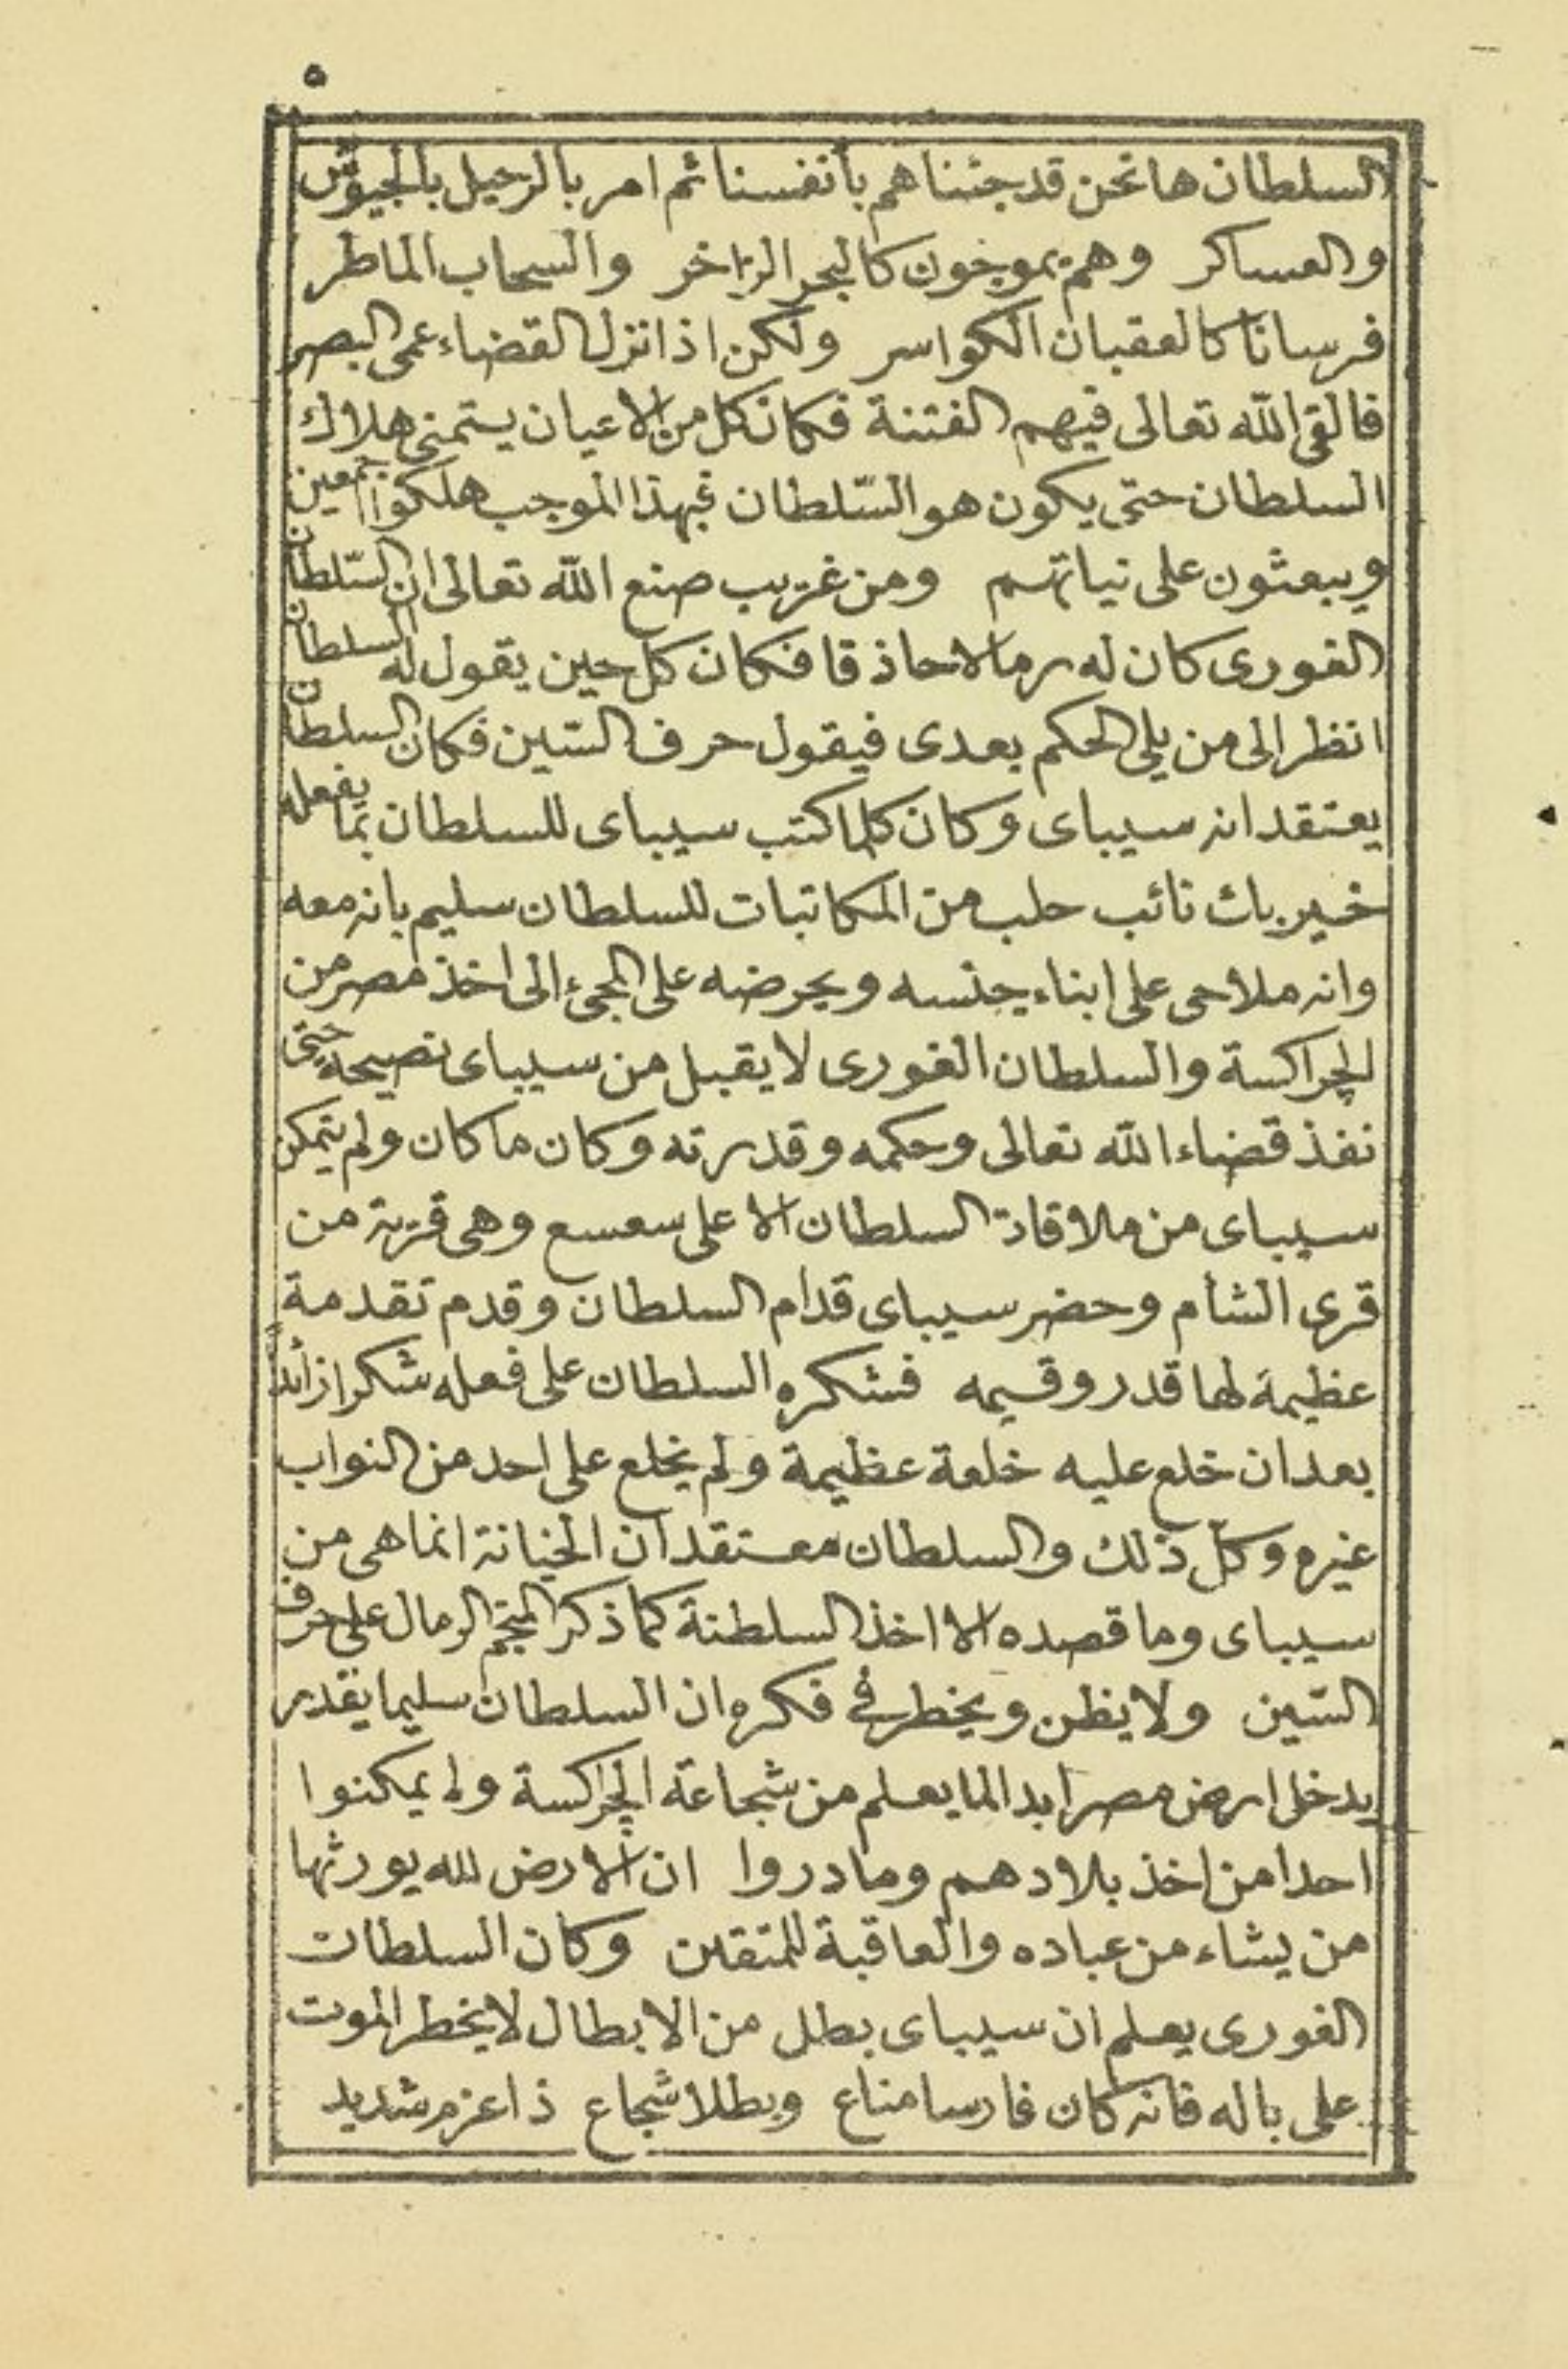 ٥
السلطان ها نحن قد جئناهم بأنفسنا ثم امر بالرحيل بالجيوش
والعساكر وهم يموجون كالبحر الزاخر والسحاب الماطر
فرسانا كالعقبان الكواسر ولكن اذا نزل القضاء عمى البصر
فالقى الله تعالى فيهم الفتنة فكان كل من الاعيان يتمنى هلاك
السلطان حتى يكون هو السلطان فبهذا الموجب هلكوا اجمعين
ويبعثون على نياتهم ومن غريب صنع الله تعالى ان السلطان
الغورى كان له رمالا حاذقا فكان كل حين يقول له السلطان
انظر الى من يلى الحكم بعدى فيقول حرف السين فكان السلطان
يعتقد انه سيباى وكان كلما كتب سيباى للسلطان بما يفعله
خير بك نائب حلب من المكاتبات للسلطان سليم بانه معه
وانه ملاحى على ابناء جنسه ويحرضه على المجئ الى اخذ مصر من
الجراكسة والسلطان الغورى لا يقبل من سيباى نصيحة حتى
نفذ قضاء الله تعالى وحكمه وقدرته وكان ما كان ولم يتمكن
سيباى من ملاقاة السلطان الا على سعسع وهى قرية من
قرى الشأم وحضر سيباى قدام السلطان وقدم تقدمة
عظيمة لها قدر وقيمه فشكره السلطان على فعله شكرا زائدا
بعد ان خلع عليه خلعة عظيمة ولم يخلع على احد من النواب
غيره وكل ذلك والسلطان معتقد ان الخيانة انما هى من
سيباى وما قصده الا اخذ السلطنة كما ذكر المنجم الرمال على حرف
السين ولا يظن ويخطر فى فكره ان السلطان سليما يقدر
يدخل ارض مصر ابدا لما يعلم من شجاعة الجراكسة ولا يمكنوا
احدا من اخذ بلادهم وما دروا ان الارض لله يورثها
من يشاء من عباده والعاقبة للمتقين وكان السلطان
الغورى يعلم ان سيباى بطل من الابطال لا يخطر الموت
على باله فانه كان فارسا مناع وبطلا شجاع ذا عزم شديد